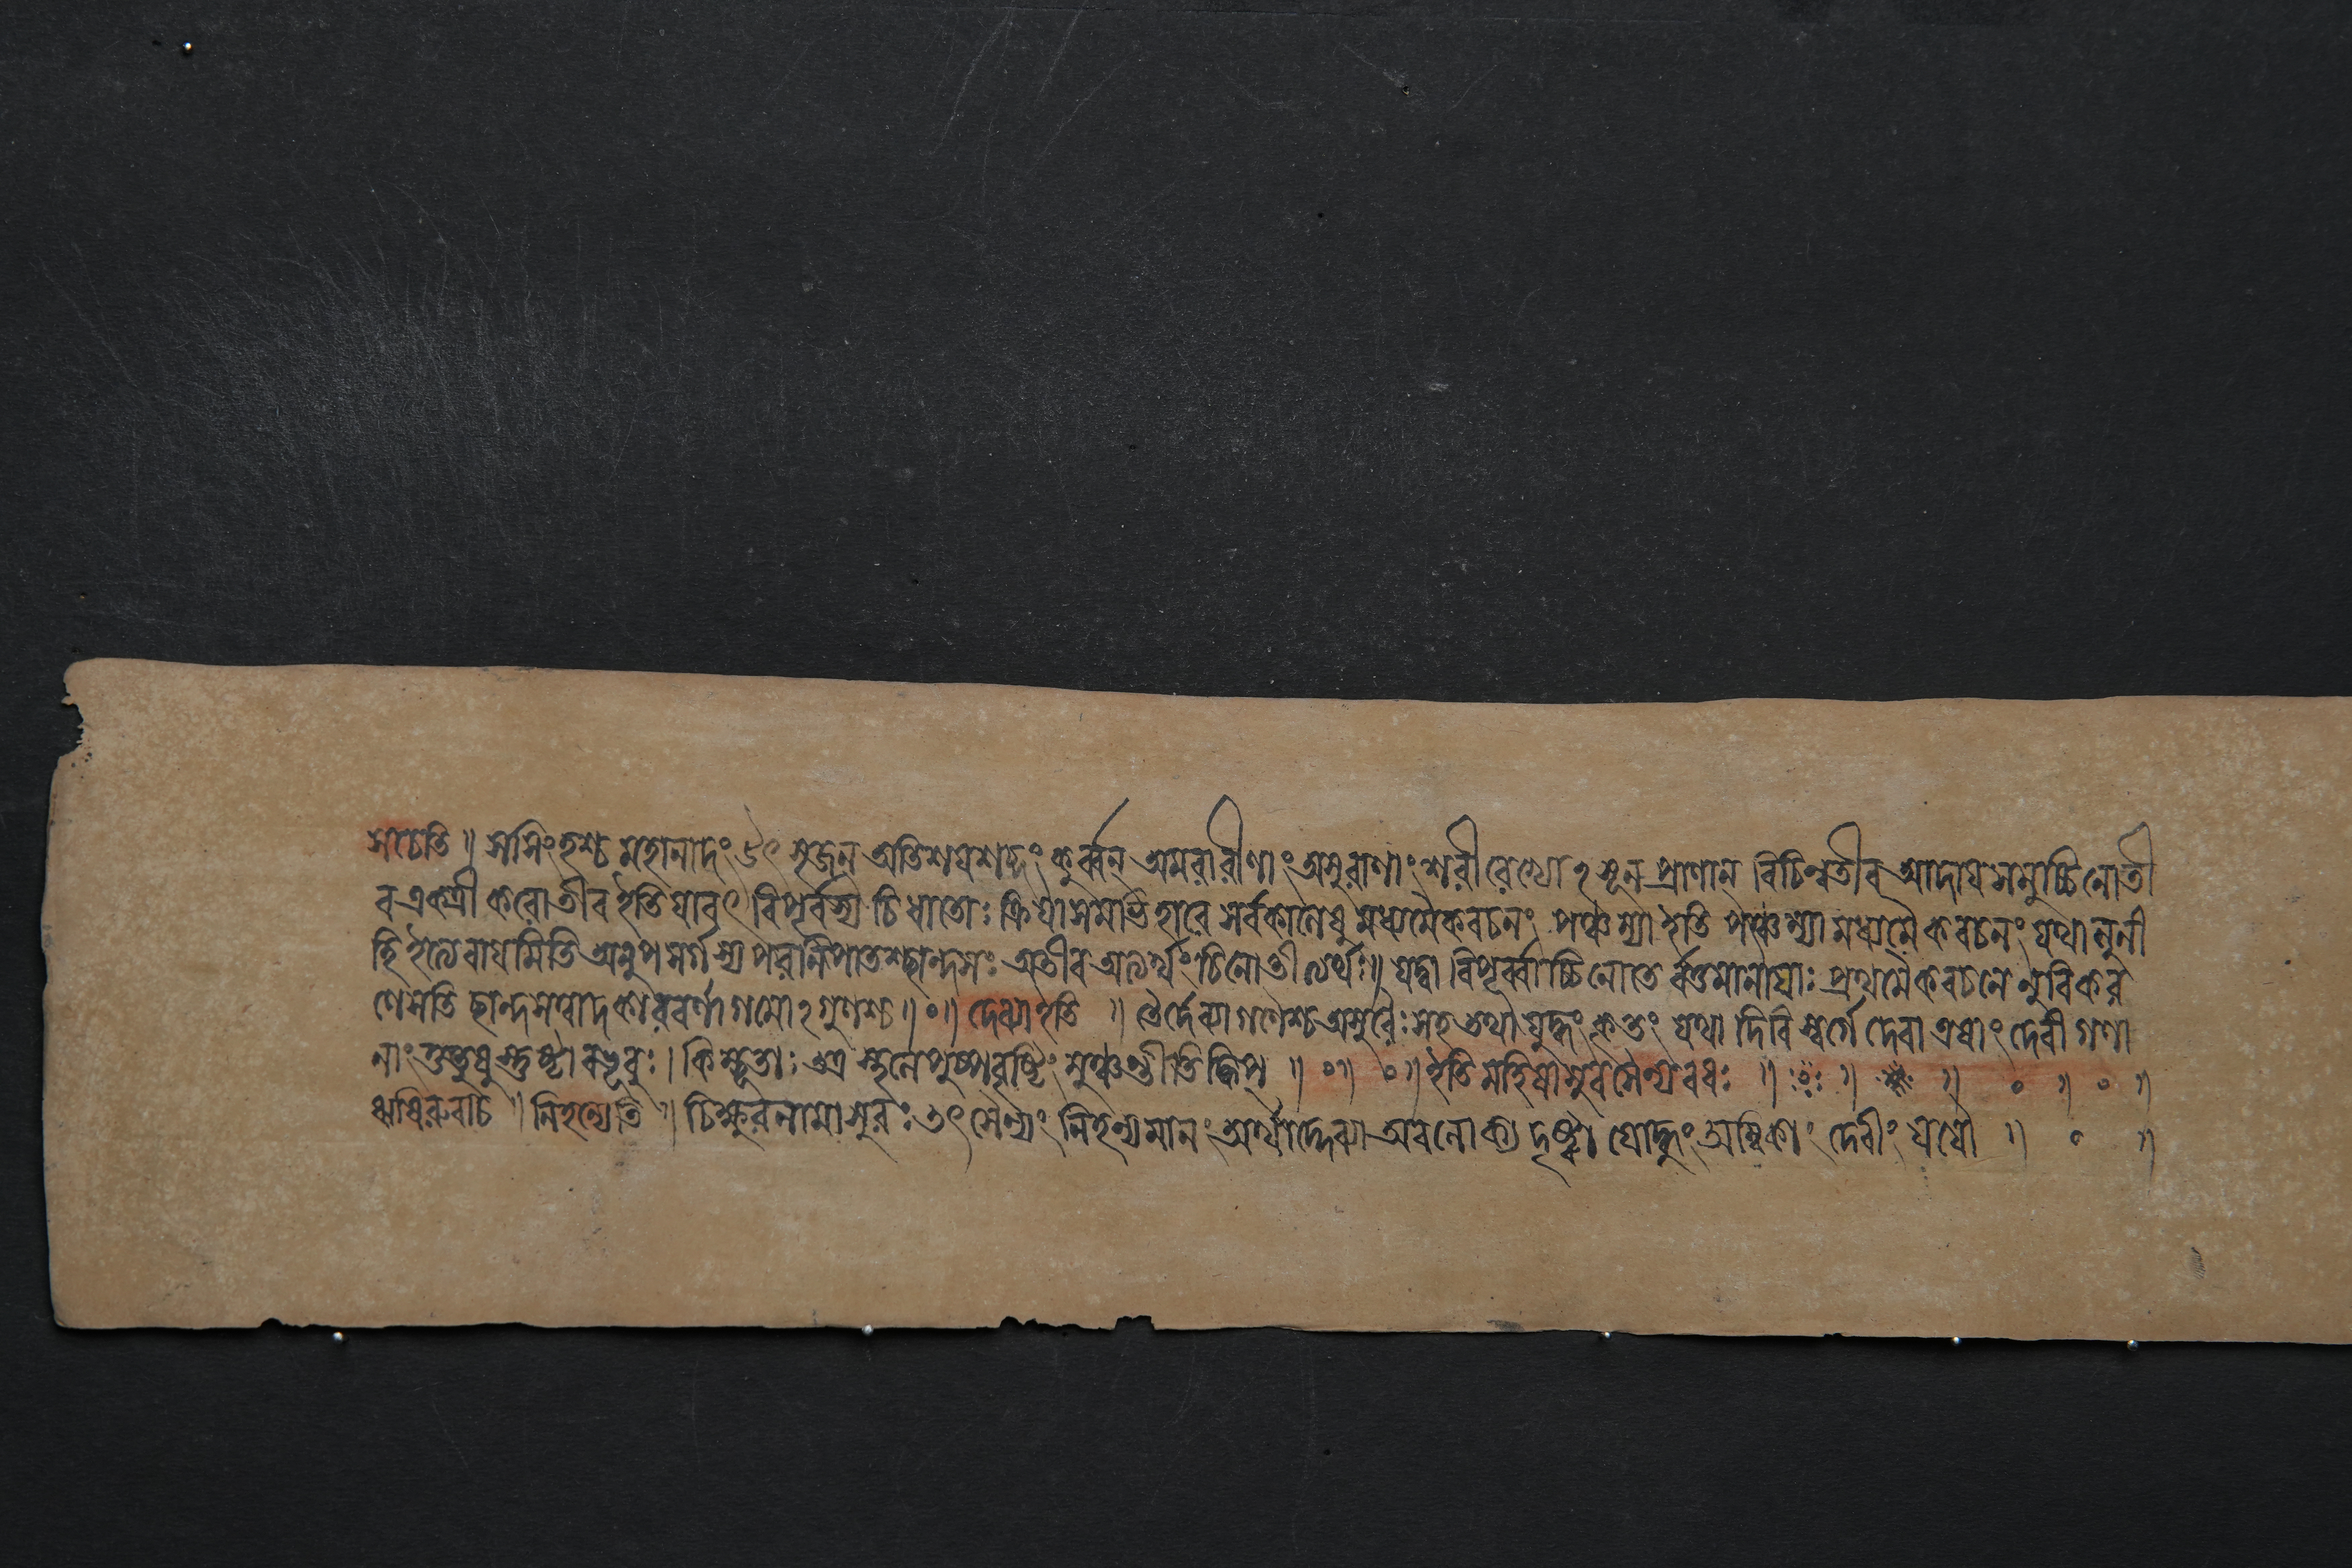 স চেতি ॥ স সিংহশ্চ মহানাদং উৎসৃজন্ অতিশয়শব্দং কুর্ব্বন্ অমরারীণাং অসুরাণাং শরীরেভ্যোঽসূন্ প্রাণান্ বিচিন্বতীব আদায় সমুচ্চিনোতী
ব একত্রী করোতীব ইতি যাবৎ বিপূর্বস্য চি ধাতোঃ ক্রিয়াসমাভিহারে সর্বকালেষু মধ্যমৈকবচনং পঞ্চম্যা ইতি পঞ্চম্যা মধ্যমৈকবচনং যথা লুনী
হি ইত্যেবায়মিতি অনুপসর্গস্য পরনিপাতশ্ছান্দসঃ অতীব অত্যর্থং চিনোতীত্যর্থঃ ॥ যদ্বা বিপূর্ব্বাচ্চিনোতে র্বর্ত্তমানায়াঃ প্রথমৈকবচনে নুবিকর
ণেসতি ছান্দসম্বাদকারবর্ণাগমোঽগুণশ্চ ॥ ০ ॥ দেব্যা ইতি ॥ তৈর্দেব্যাগণৈশ্চ অসুরৈঃ সহ তথা যুদ্ধং কৃতং যথা দিবি স্বর্গে দেবা এষাং দেবীগণা
নাং তুতুষুস্তুষ্টা বভূবুঃ । কিম্ভূতাঃ পুষ্পবৃষ্টিং মুঞ্চন্তীতি ক্বিপ্ ॥ ০ ॥ ০ ॥ ইতি মহিষাসুরসৈন্যবধঃ ॥ ॥ ॥ ০ ॥ ০ ॥
ঋষিরুবাচ ॥ নিহন্যেতি ॥ চিক্ষুরনামাসুরঃ তৎ সৈন্যং নিহন্যমানং অর্থাদ্দেব্যা অবলোক্য দৃষ্ট্বা যোদ্ধুং অম্বিকাং দেবীং যযৌ ॥ ০ ॥